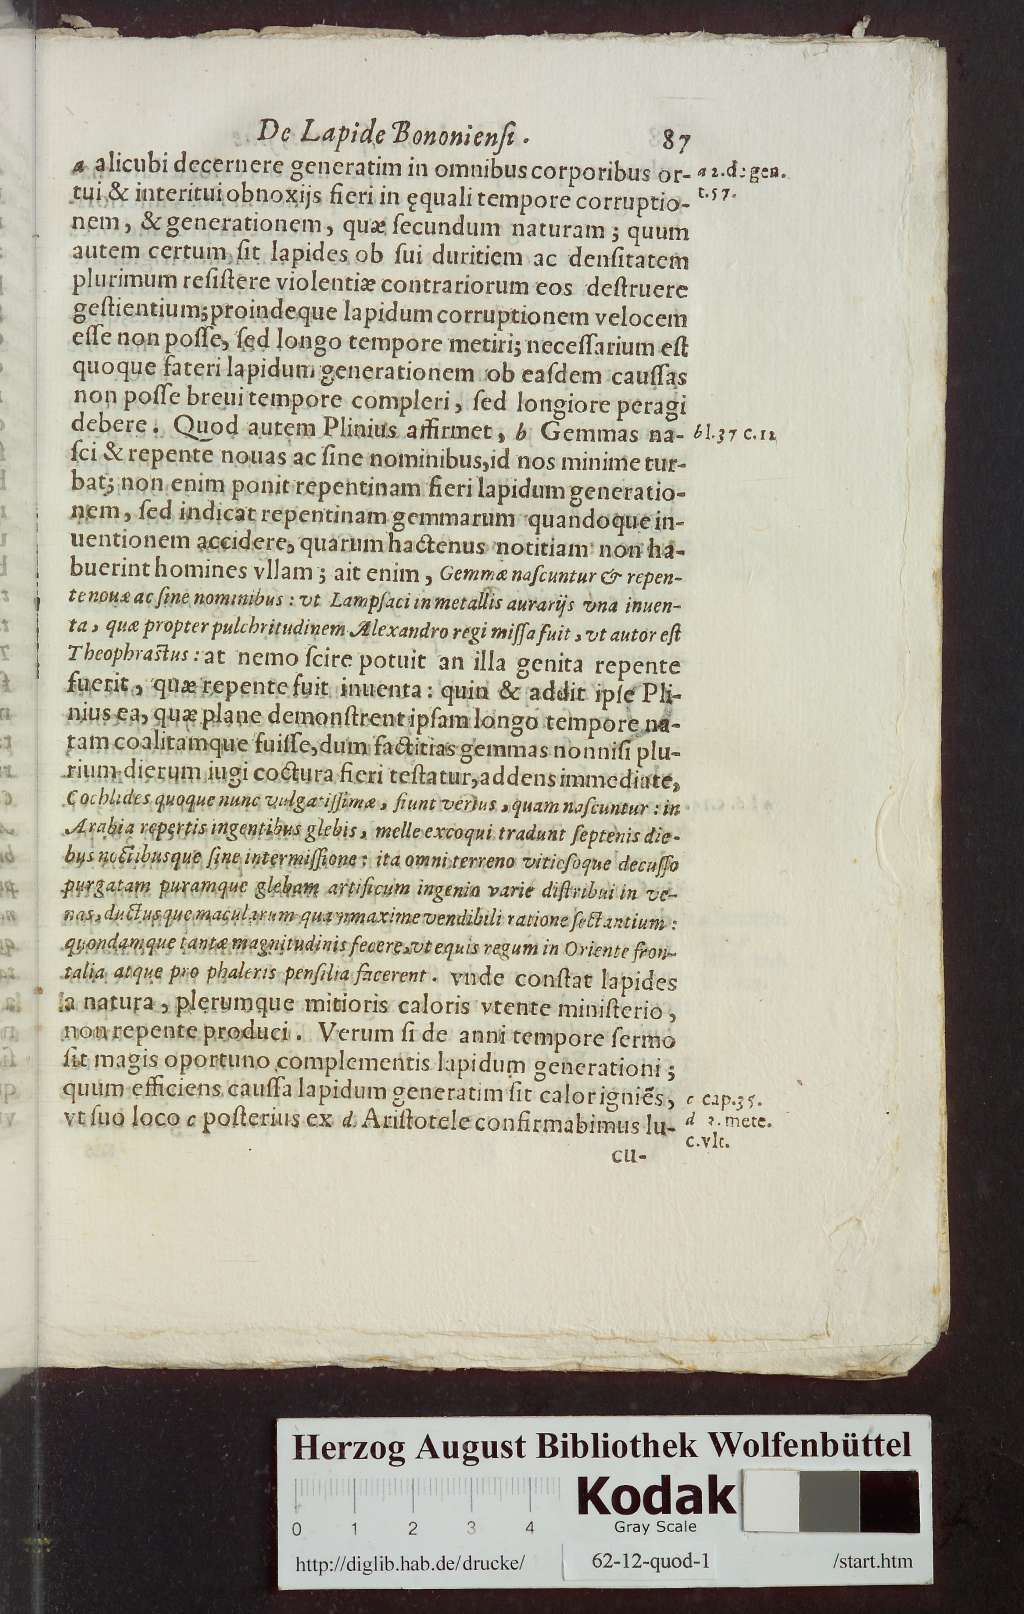 De Lapide Bononienſi. 87
a alicubi decernere generatim in omnibus corporibus or- a 2. d: gen.
tui & interitui obnoxijs fieri in ęquali tempore corruptio- t.57.
nem, & generationem, quæ ſecundum naturam; quum
autem certum ſit lapides ob ſui duritiem ac denſitatem
plurimum reſiſtere violentiæ contrariorum eos deſtruere
geſtientium; proindeque lapidum corruptionem velocem
eſſe non poſſe, ſed longo tempore metiri; neceſſarium eſt
quoque fateri lapidum generationem ob eaſdem cauſſas
non poſſe breui tempore compleri, ſed longiore peragi
debere. Quod autem Plinius affirmet, b Gemmas na- b l.37 c.12
ſci & repente nouas ac ſine nominibus, id nos minime tur-
bat; non enim ponit repentinam fieri lapidum generatio-
nem, ſed indicat repentinam gemmarum quandoque in-
uentionem accidere, quarum hactenus notitiam non ha-
buerint homines vllam; ait enim, Gemmæ naſcuntur & repen-
te nouæ ac ſine nominibus: vt Lampſaci in metallis aurarijs vna inuen-
ta, quæ propter pulchritudinem Alexandro regi miſſa fuit, vt autor eſt
Theophraſtus: at nemo ſcire potuit an illa genita repente
fuerit, quæ repente fuit inuenta: quin & addit ipſe Pli-
nius ea, quæ plane demonſtrent ipſam longo tempore na-
tam coalitamque fuiſſe, dum factitias gemmas nonniſi plu-
rium dierum iugi coctura fieri teſtatur, addens immediate,
Cochlides quoque nunc vulgariſſimæ, fiunt verius, quam naſcuntur: in
Arabia repertis ingentibus glebis, melle excoqui tradunt ſeptenis die-
bus noctibusque ſine intermiſſione: ita omni terreno vitioſoque decuſſo
purgatam puramque glebam artificum ingenio varie diſtribui in ve-
nas, ductusque macularum quam maxime vendibili ratione ſectantium:
quondamque tantæ magnitudinis fecere, vt equis regum in Oriente fron-
talia atque pro phaleris penſilia facerent. vnde conſtat lapides
a natura, plerumque mitioris caloris vtente miniſterio,
non repente produci. Verum ſi de anni tempore ſermo
ſit magis oportuno complementis lapidum generationi;
quum efficiens cauſſa lapidum generatim ſit calor igniēs, c cap.35.
vt ſuo loco c poſterius ex d Ariſtotele confirmabimus lu- d 2. mete.
c.vlt.
cu-
Herzog August Bibliothek Wolfenbüttel
0 1 2 3 4
Kodak
Gray Scale
http://diglib.hab.de/drucke/ 62-12-quod-1 /start.htm